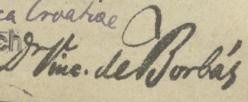 ca Croatiae
ch
Dr Vinc. de Borbás